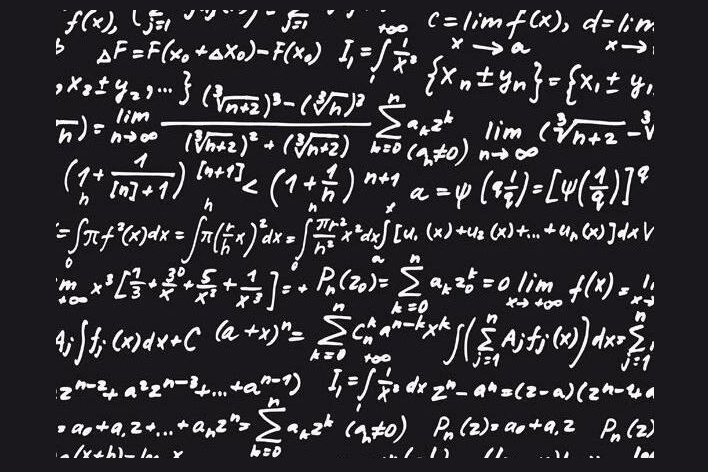 f(x), (Σ j=1 Σ j=1 +∞ c=lim f(x), d=lim
ΔF=F(x₀+Δx₀)-F(x₀) I₁=∫ 1/x³ x→a x→
,x₃±y₂,...} {xₙ±yₙ}={x₁±y₁
n)=lim n→∞ ((∛n+2)³-(∛n)³)/((∛n+2)²+(∛n+2) Σ n k=0 aₖzᵏ (aₙ≠0) lim n→∞ (∛n+2-∛
(1+1/([n]+1))^[n+1] < (1+1/n)^n+1 a=ψ(q 1/q)=[ψ(1/q)]^q
=∫₀ʰ πf²(x)dx=∫ʰπ(r/h x)²dx=∫₀ʰ πr²/h² x²dx ∫ₐˣ[u₁(x)+u₂(x)+...+uₙ(x)]dx V
m +∞ x³[7/3+30/x+5/x²+1/x³]=+ Pₙ(z₀)=Σ n k=0 aₖz₀ᵏ=0 lim x→+∞ f(x)=
Aⱼ∫fⱼ(x)dx+C (a+x)ⁿ=Σ n k=0 Cₙᵏaⁿ⁻ᵏxᵏ ∫(Σ n j=1 Aⱼfⱼ(x))dx=Σ n j=1
zⁿ⁻²+a²zⁿ⁻³+...+aⁿ⁻¹) I₁=∫ +∞ 1/x³ dx zⁿ-aⁿ=(z-a)(zⁿ⁻¹+a
=a₀+a₁z+...+aₙzⁿ=Σ n k=0 aₖzᵏ (aₙ≠0) Pₙ(z)=a₀+a₁z Pₙ(z)